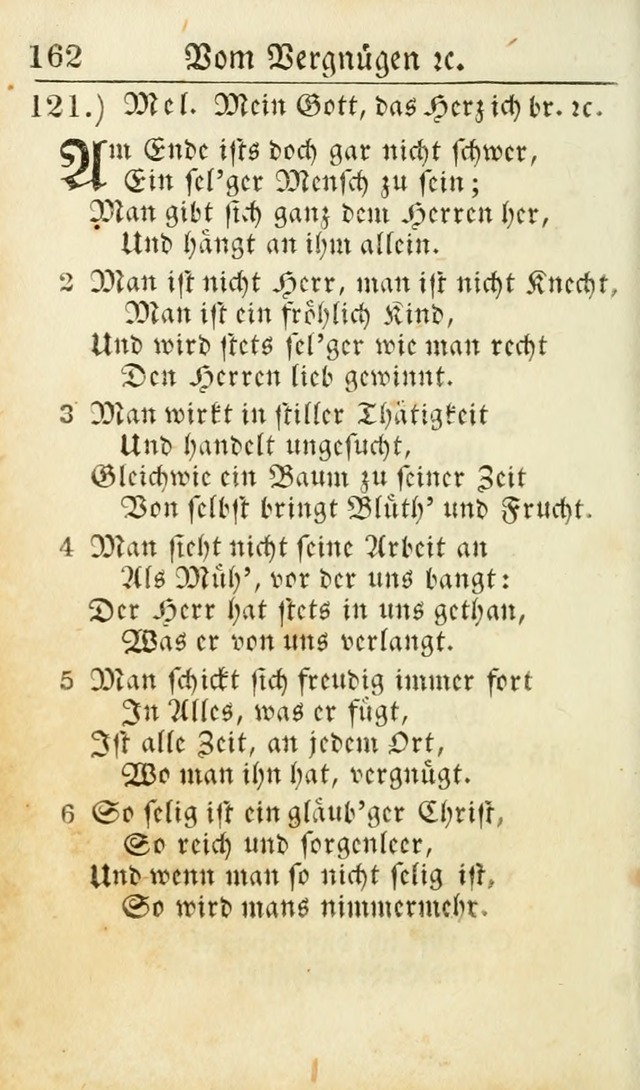 162 Vom Vergnügen ꝛc.
121.) Mel. Mein Gott, das Herz ich br. ꝛc.
Am Ende ists doch gar nicht schwer,
Ein sel'ger Mensch zu sein;
Man gibt sich ganz dem Herren her,
Und hängt an ihm allein.
2 Man ist nicht Herr, man ist nicht Knecht,
Man ist ein fröhlich Kind,
Und wird stets sel'ger wie man recht
Den Herren lieb gewinnt.
3 Man wirkt in stiller Thätigkeit
Und handelt ungesucht,
Gleichwie ein Baum zu seiner Zeit
Von selbst bringt Blüth' und Frucht.
4 Man sieht nicht seine Arbeit an
Als Müh', vor der uns bangt:
Der Herr hat stets in uns gethan,
Was er von uns verlangt.
5 Man schickt sich freudig immer fort
In Alles, was er fügt,
Ist alle Zeit, an jedem Ort,
Wo man ihn hat, vergnügt.
6 So selig ist ein gläub'ger Christ,
So reich und sorgenleer,
Und wenn man so nicht selig ist,
So wird mans nimmermehr.